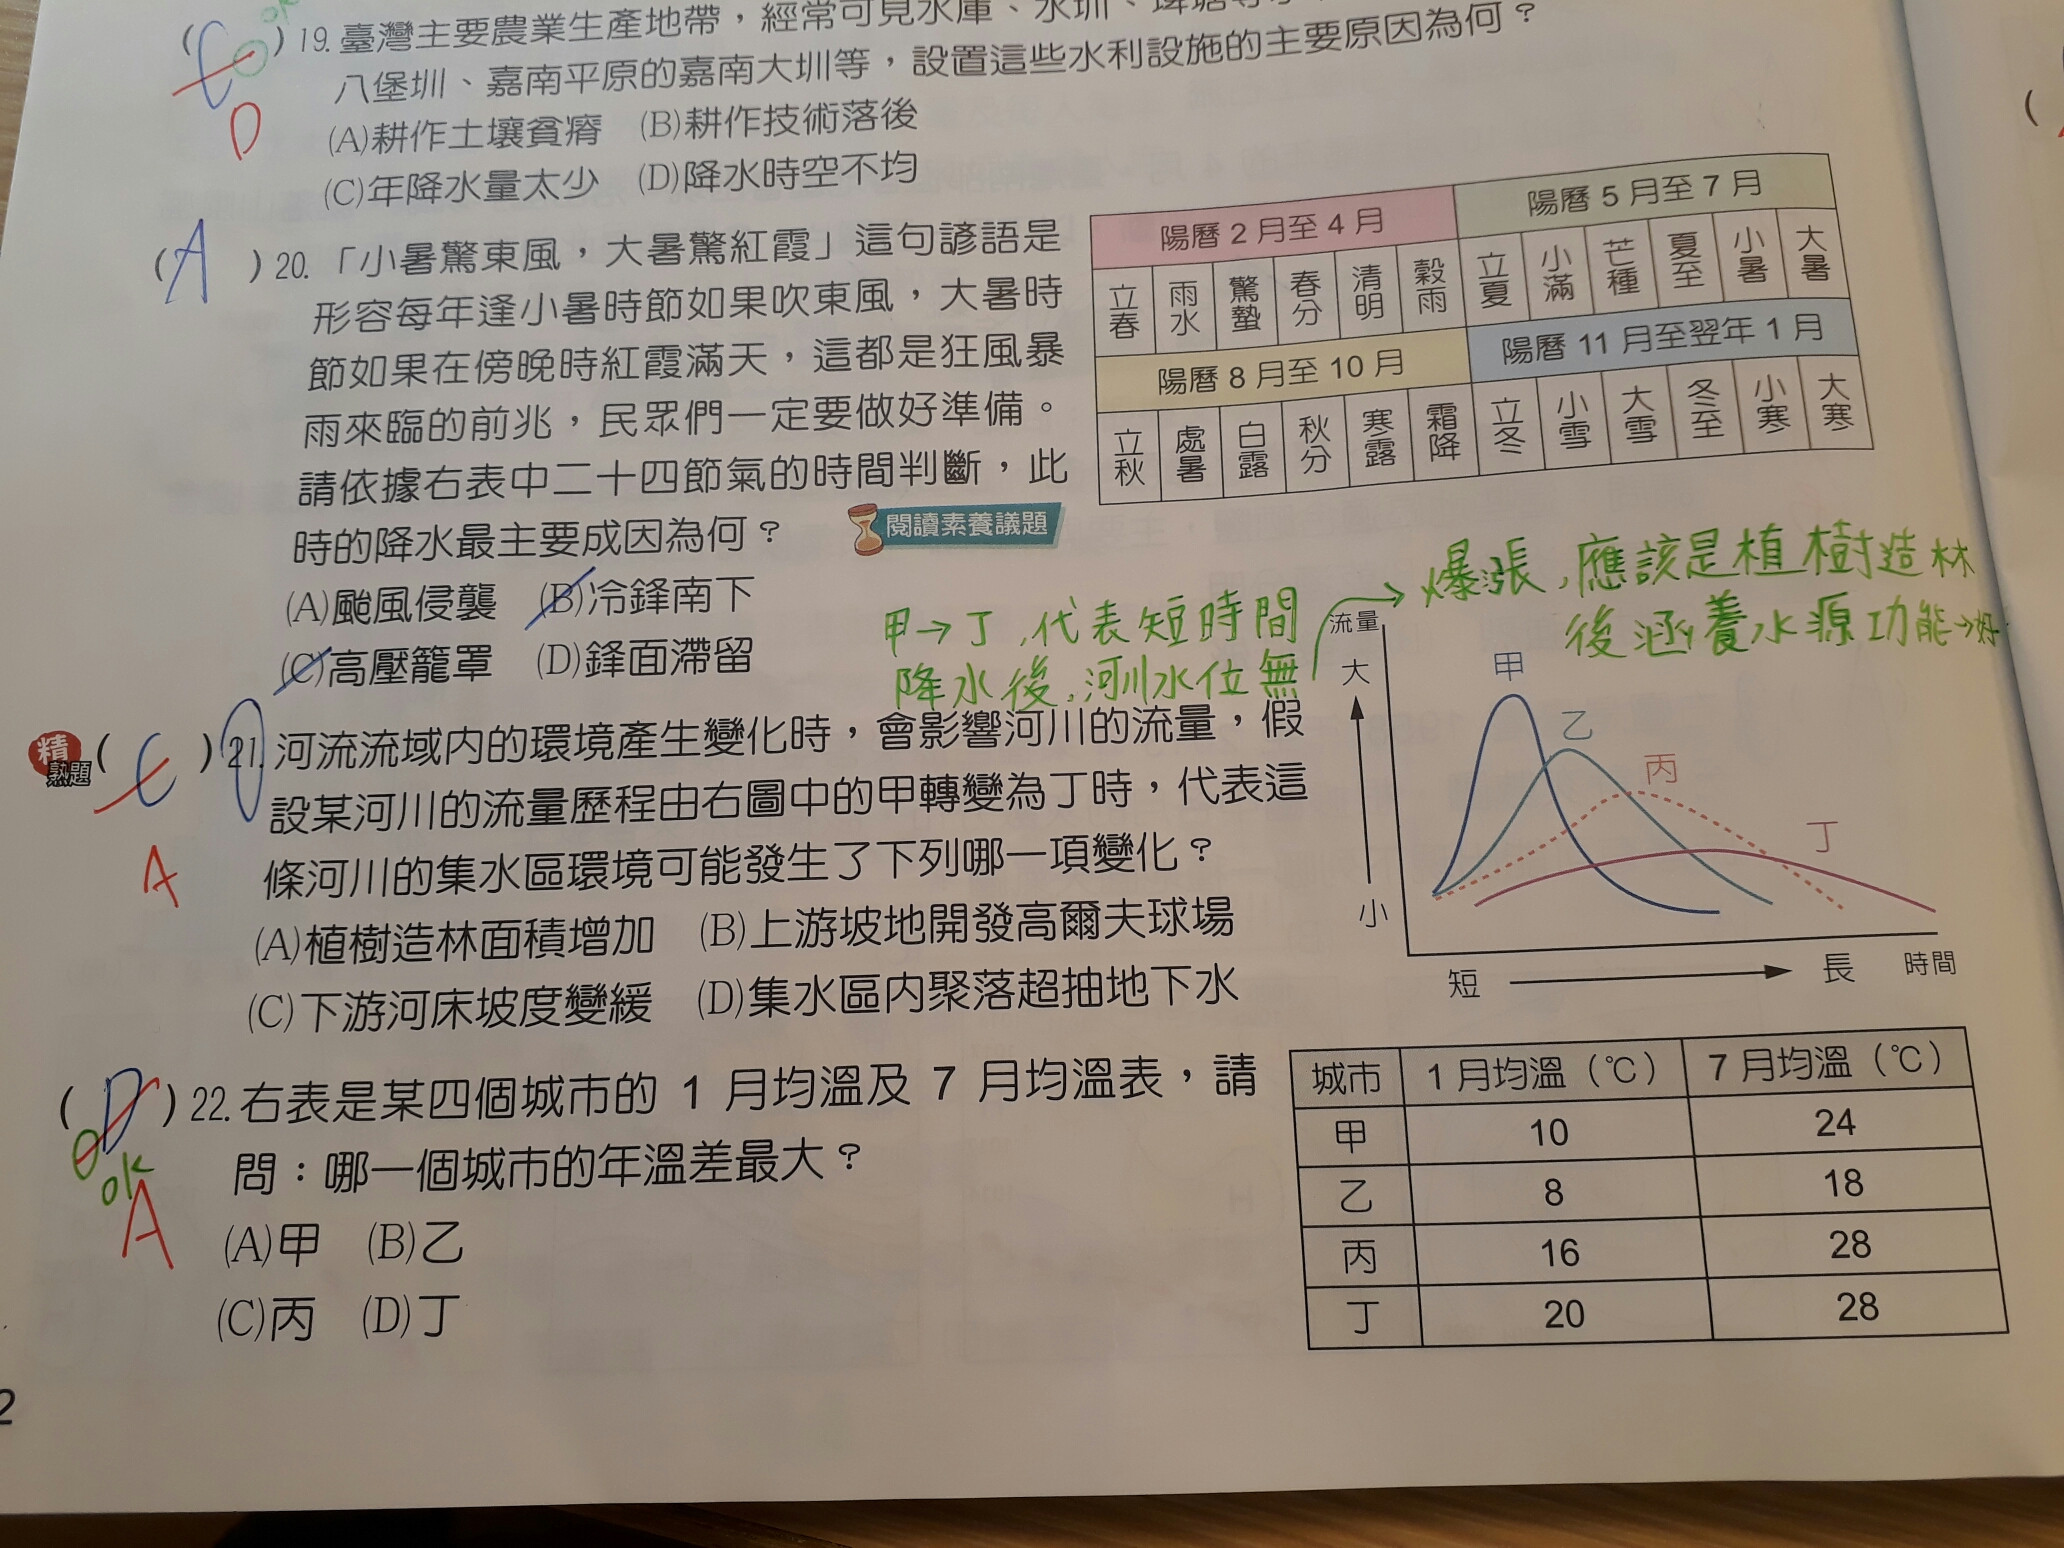 ok
(C)19.臺灣主要農業生產地帶，經常可見水庫、水圳、埤塘等
八堡圳、嘉南平原的嘉南大圳等，設置這些水利設施的主要原因為何？
D
(A)耕作土壤貧瘠 (B)耕作技術落後
(C)年降水量太少 (D)降水時空不均
(A)20.「小暑驚東風，大暑驚紅霞」這句諺語是
形容每年逢小暑時節如果吹東風，大暑時
節如果在傍晚時紅霞滿天，這都是狂風暴
雨來臨的前兆，民眾們一定要做好準備。
請依據右表中二十四節氣的時間判斷，此
時的降水最主要成因為何？
閱讀素養議題
(A)颱風侵襲 (B)冷鋒南下
(C)高壓籠罩 (D)鋒面滯留
陽曆 2 月至 4 月 陽曆 5 月至 7 月
立春 雨水 驚蟄 春分 清明 穀雨 立夏 小滿 芒種 夏至 小暑 大暑
陽曆 8 月至 10 月 陽曆 11 月至翌年 1 月
立秋 處暑 白露 秋分 寒露 霜降 立冬 小雪 大雪 冬至 小寒 大寒
甲→丁,代表短時間
降水後,河川水位無
→爆漲,應該是植樹造林
後涵養水源功能→好
精熟題
(C)21.河流流域內的環境產生變化時，會影響河川的流量，假
設某河川的流量歷程由右圖中的甲轉變為丁時，代表這
條河川的集水區環境可能發生了下列哪一項變化？
A
(A)植樹造林面積增加 (B)上游坡地開發高爾夫球場
(C)下游河床坡度變緩 (D)集水區內聚落超抽地下水
流量
大
小
甲
乙
丙
丁
短
長
時間
(D)22.右表是某四個城市的 1 月均溫及 7 月均溫表，請
問：哪一個城市的年溫差最大？
ok
A
(A)甲 (B)乙
(C)丙 (D)丁
城市 1 月均溫（℃） 7 月均溫（℃）
甲 10 24
乙 8 18
丙 16 28
丁 20 28
2